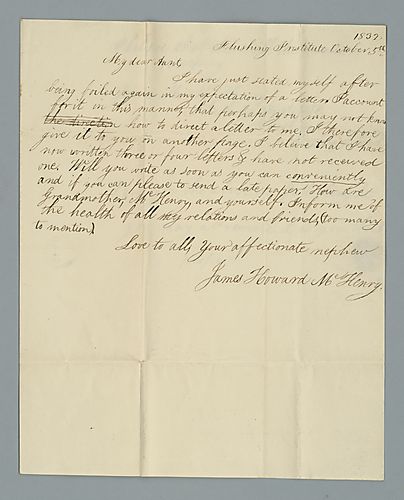 1832
Flushing Institute October, 5th
My dear Aunt
I have just seated myself after
being foiled again in my expectation of a letter. I account
for it in this manner, that perhaps you may not know
the direction how to direct a letter to me. I therefore
give it to you on another page. I beleve that I have
now written three or four letters & have not received
one. Will you write as soon as you can conveniently
and if you can please to send a late paper. How are
Grandmother, Mr Henry, and yourself. Inform me of
the health of all my relations and friends, (too many
to mention)
Love to all, Your affectionate nephew
James Howard McHenry.